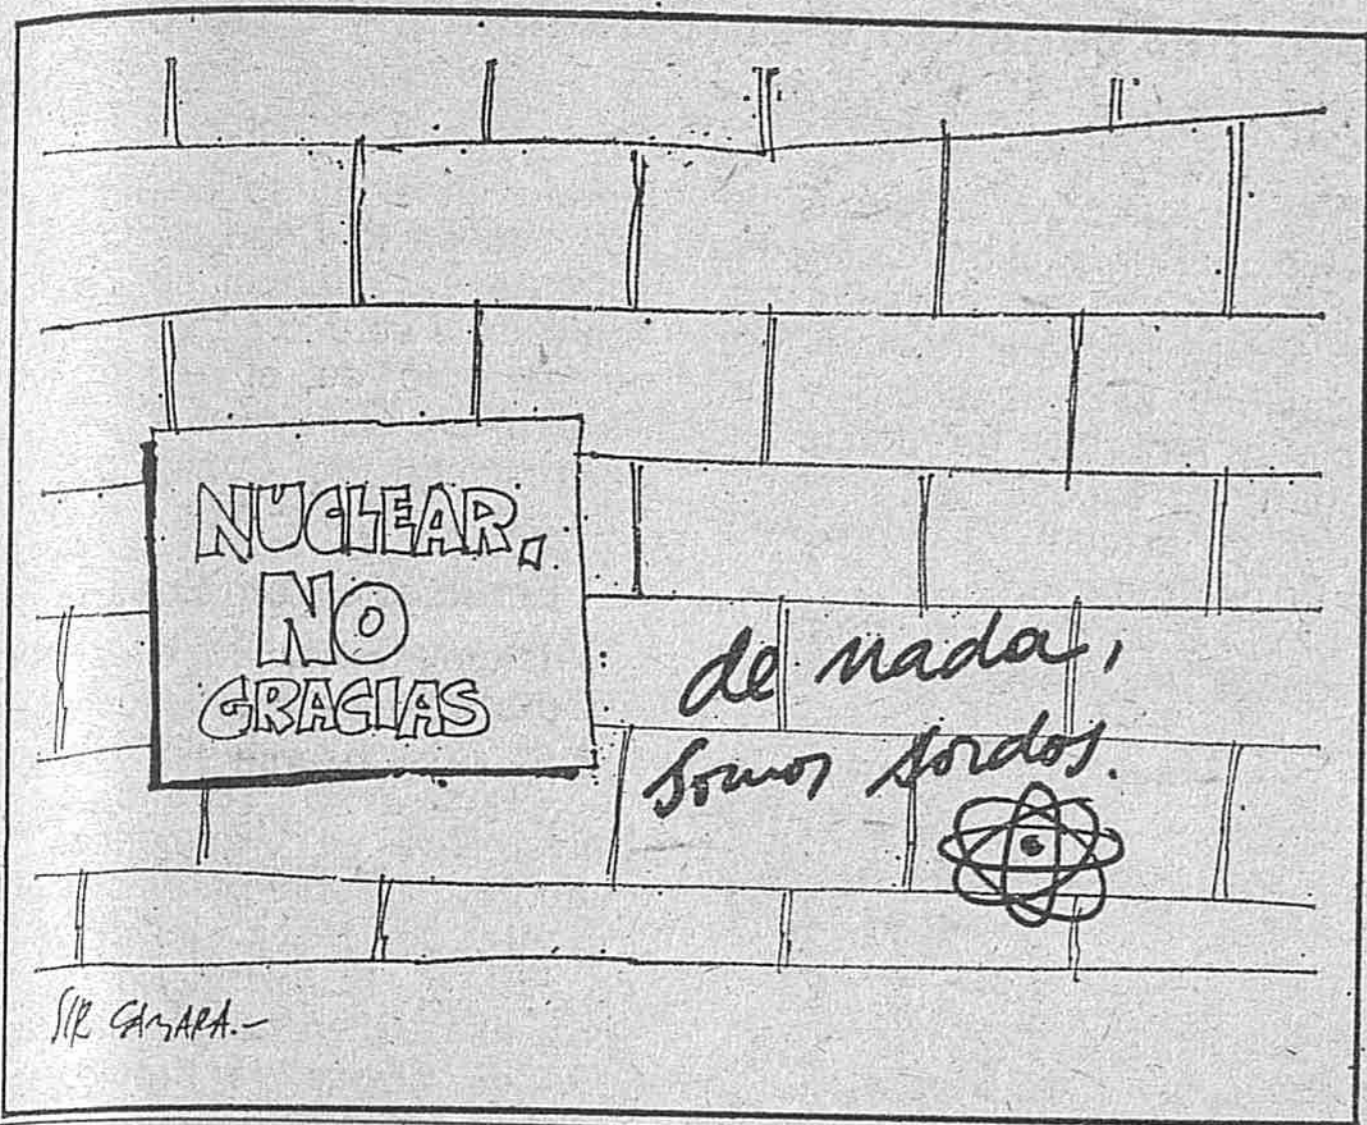 NUCLEAR,
NO
GRACIAS
de nada,
somos sordos.
SIR CAMARA.-